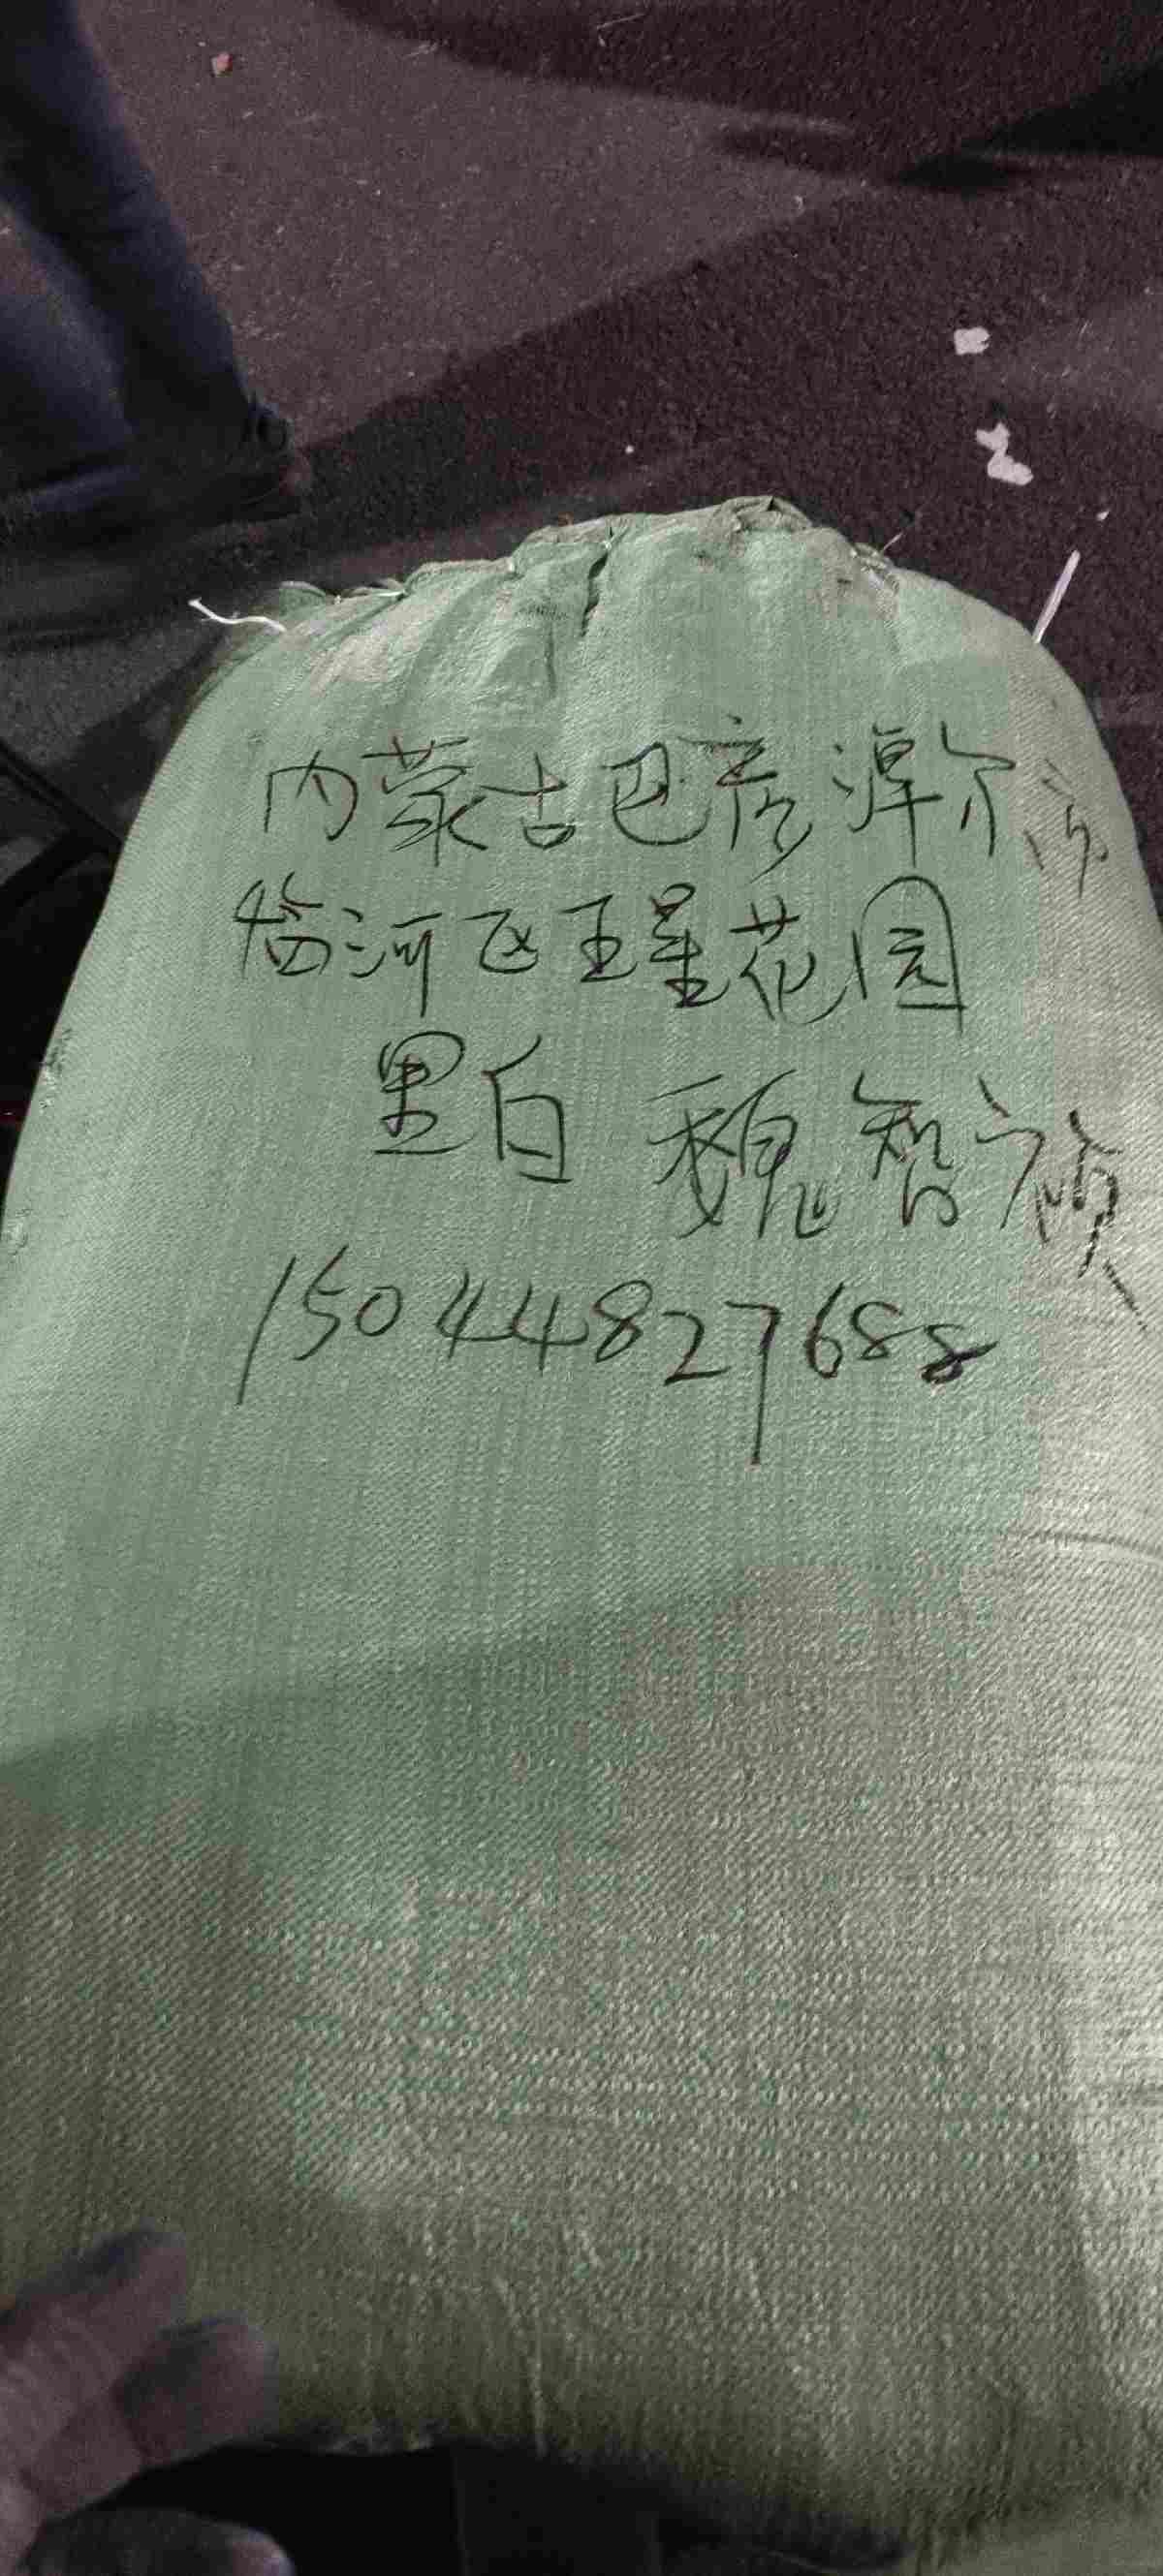 内蒙古巴彦淖尔市
临河区五星花园
里白 魏智
15044827688